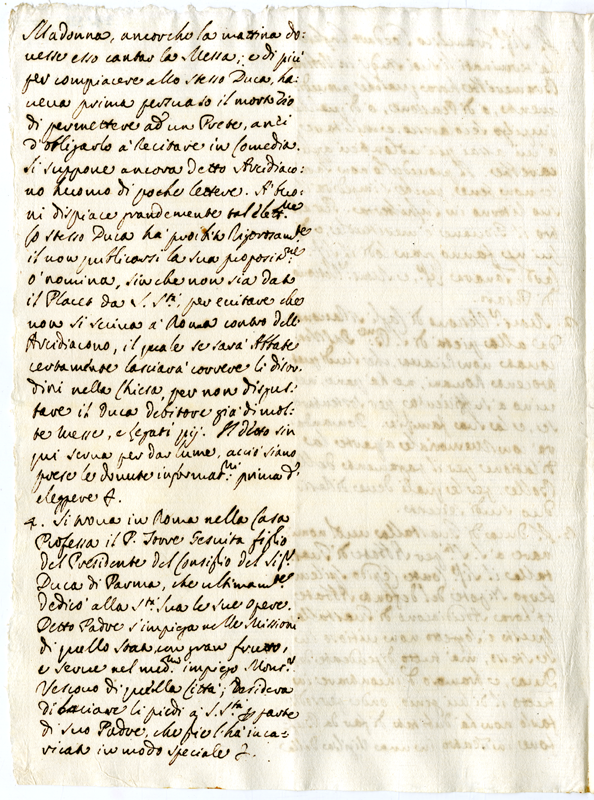 Madonna, ancorche la mattina do:
vesse esso cantar la Messa; e di più
per compiacere allo stesso Duca, ha:
veva prima persuaso il
di permettere ad un Prete, anzi
d'obligarlo à recitare in Comedia.
Si suppone ancora detto Arcidiaco:
no huomo di poche lettere. A' buo:
ni dispiace grandemente tal elett.ne
Lo stesso Duca ha proibito rigorosam.te
il non publicarsi la sua proposit.ne
ò nomina, sin che non sia dato
il Placet da S. S.tà, per evitare che
non si scriva à Roma contro dell'
Arcidiacono, il quale se sarà Abbate
certamente lasciarà correre li disor:
dini nella Chiesa, per non disgus:
tare il Duca debitore già di mol:
te Messe, e Legati pij. Il detto sin
qui serva per dar lume, acciò siano
prese le dovute informat.ni prima d'
eleggere &.
4. Si trova in Roma nella Casa
Professa il P. Gesuita figlio
del Presidente del Consiglio del Sig.r
Duca di Parma, che ultimam.te
dedicò alla S.tà Sua le sue opere.
Detto Padre s'impiega nelle Missioni
di quello Stato, con gran frutto,
e serve nel med.mo impiego Mons.r
Vescovo di quella Città; desidera
di baciare li piedi à S. S.tà per parte
di suo Padre, che gliel'hà inca:
ricato in modo speciale &.